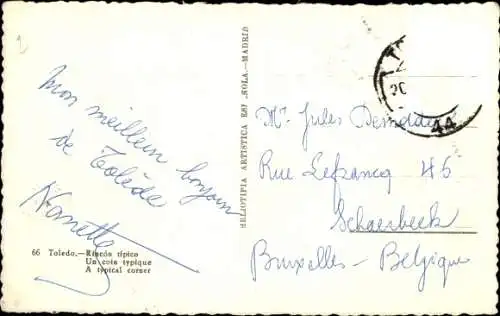 1
Mon meilleur bonjour
de Tolède
Nanette
66 Toledo.—Rincón típico
Un coin typique
A typical corner
HELIOTIPIA ARTISTICA ESPAÑOLA.—MADRID
Mr Jules
Rue Lefrancq 46
Schaerbeek
Bruxelles - Belgique
44